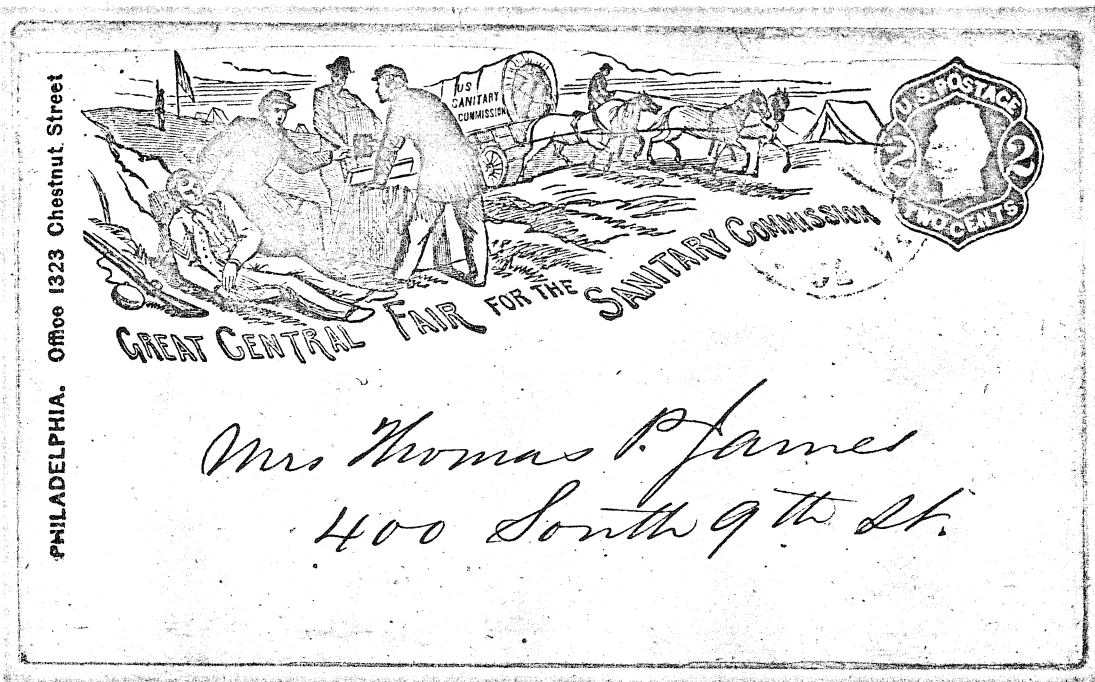 PHILADELPHIA. Office 1323 Chestnut Street
US
SANITARY
COMMISSION
U.S. POSTAGE
2 2
TWO CENTS
GREAT CENTRAL FAIR FOR THE SANITARY COMMISSION
Mrs Thomas P. James
400 South 9th St.